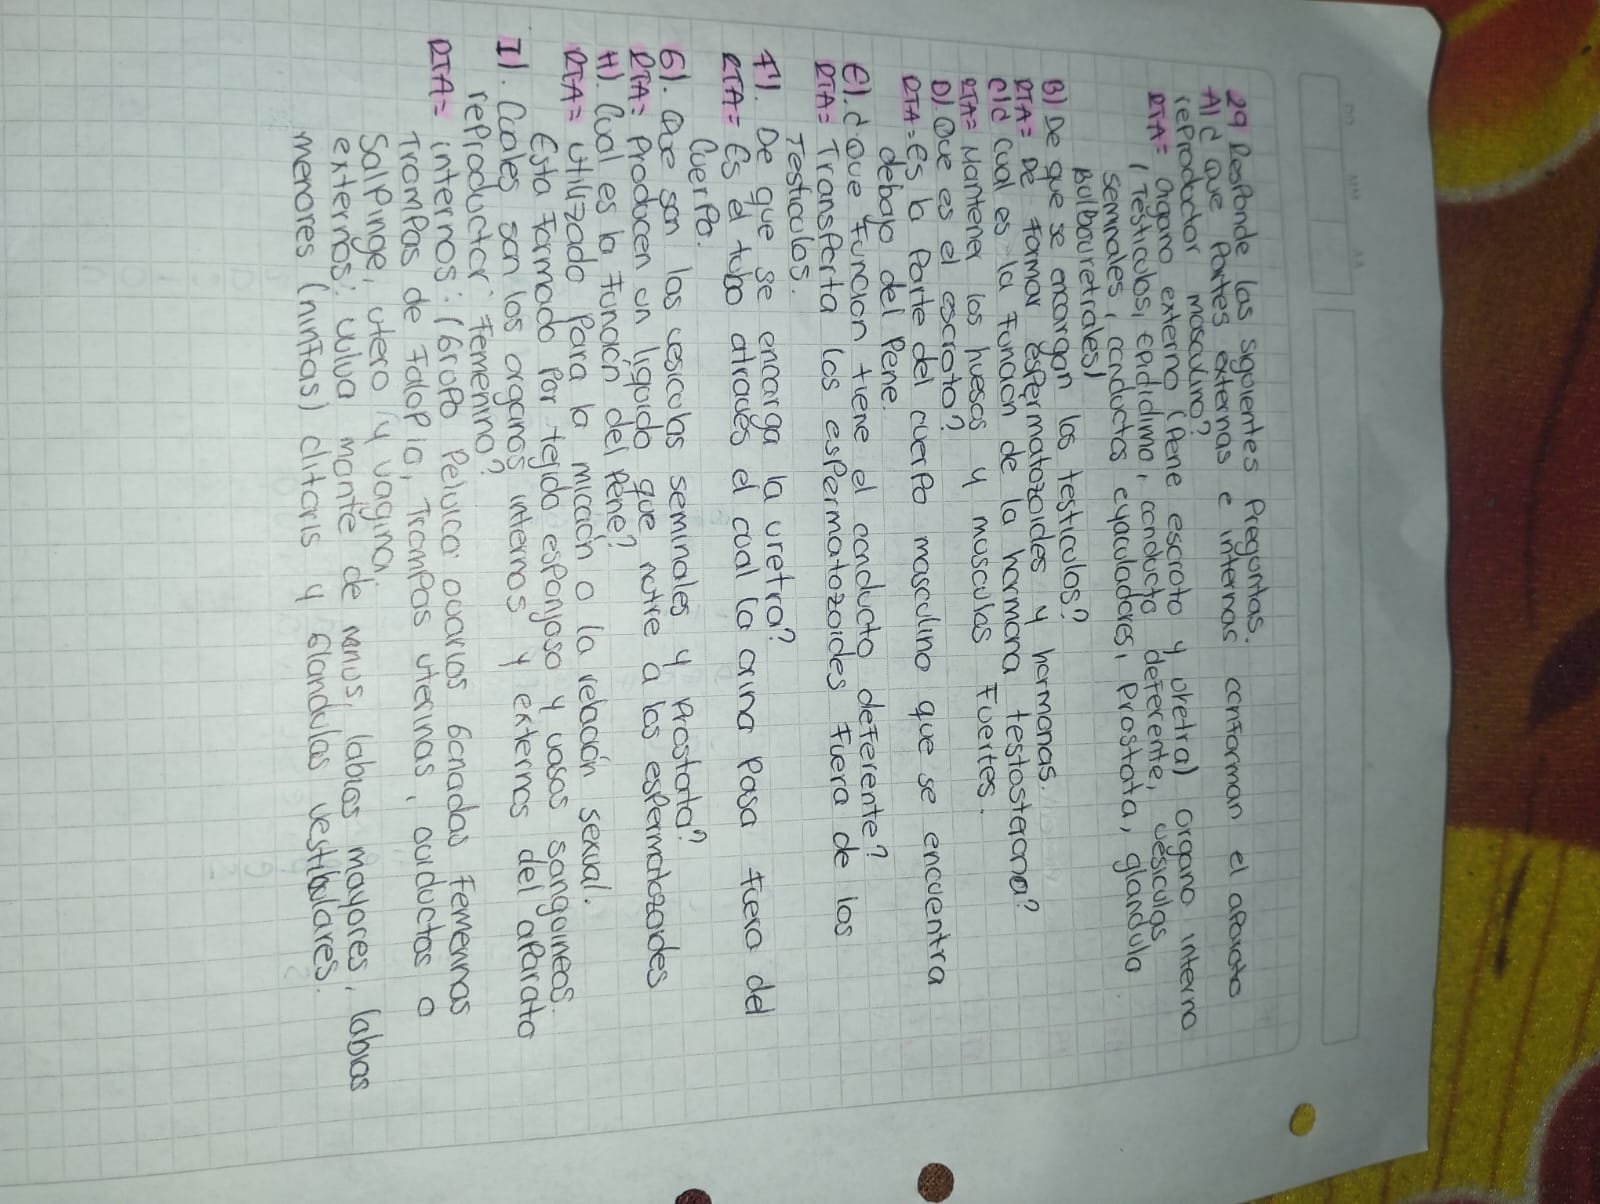 29 Responde las siguientes Preguntas.
A) ¿ Que Partes externas e internas conforman el aparato
reproductor masculino?
RTA= Organo externo (Pene escroto y uretra) organo interno
(Testiculos, Epididimo, conducto deferente, vesiculas
seminales, conductos eyaculadores, Prostata, glandula
bulbouretrales)
B) De que se encargan los testiculos?
RTA= De formar espermatozoides y hormonas.
C) ¿ Cual es la funcion de la hormona testosterona?
RTA= Mantener los huesos y musculos Fuertes.
D) Que es el escroto?
RTA= Es la Parte del cuerpo masculino que se encuentra
debajo del Pene.
E). ¿ Que funcion tiene el conducto deferente?
RTA= Transporta los espermatozoides fuera de los
Testiculos.
F). De que se encarga la uretra?
RTA= Es el tubo atraves el cual la orina Pasa fuera del
Cuerpo.
G). Que son las vesiculas seminales y prostata?
RTA= Producen un liquido que nutre a los espermatozoides
H) Cual es la funcion del Pene?
RTA= Utilizado Para la micción o la relación sexual.
Esta formado Por tejido esponjoso y vasos sanguineos.
I). Cuales son los organos internos y externos del aparato
reproductor femenino?
RTA= internos: (Grupo Pelvico: ovarios Gonadas Femeninas
Trompas de Falopio, Trompas uterinas, oviductos o
Salpinge, utero y vagina.
externos: vulva monte de venus, labios mayores, labios
menores (ninfas) clitoris y Glandulas vestibulares.